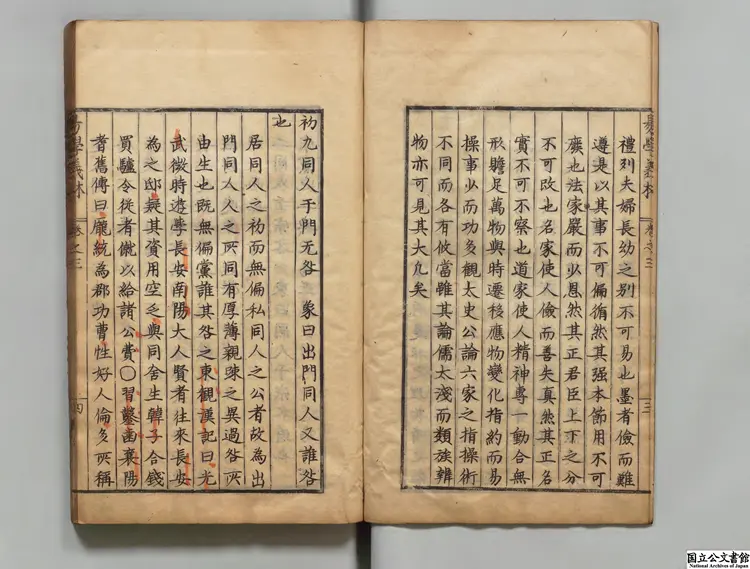 易學義林 卷之三 三
禮列夫婦長幼之別不可易也墨者儉而難
遵是以其事不可偏循然其强本節用不可
廢也法家嚴而少恩然其正君臣上下之分
不可改也名家使人儉而善失真然其正名
實不可不察也道家使人精神專一動合無
形贍足萬物與時遷移應物變化指約而易
操事少而功多觀太史公論六家之指操術
不同而各有攸當雖其論儒太淺而類族辨
物亦可見其大凡矣
初九同人于門无咎 象曰出門同人又誰咎
也
居同人之初而無偏私同人之公者故為出
門同人人之所同有厚薄親疎之異過咎所
由生也既無偏黨誰其咎之東觀漢記曰光
武微時遊學長安南陽大人賢者往來長安
為之邸疑其資用空乏與同舍生韓子合錢
買驢令從者僦以給諸公費○習鑿齒襄陽
耆舊傳曰龐統為郡功曹性好人倫多所稱
易學義林 卷之三 四
国立公文書館
National Archives of Japan